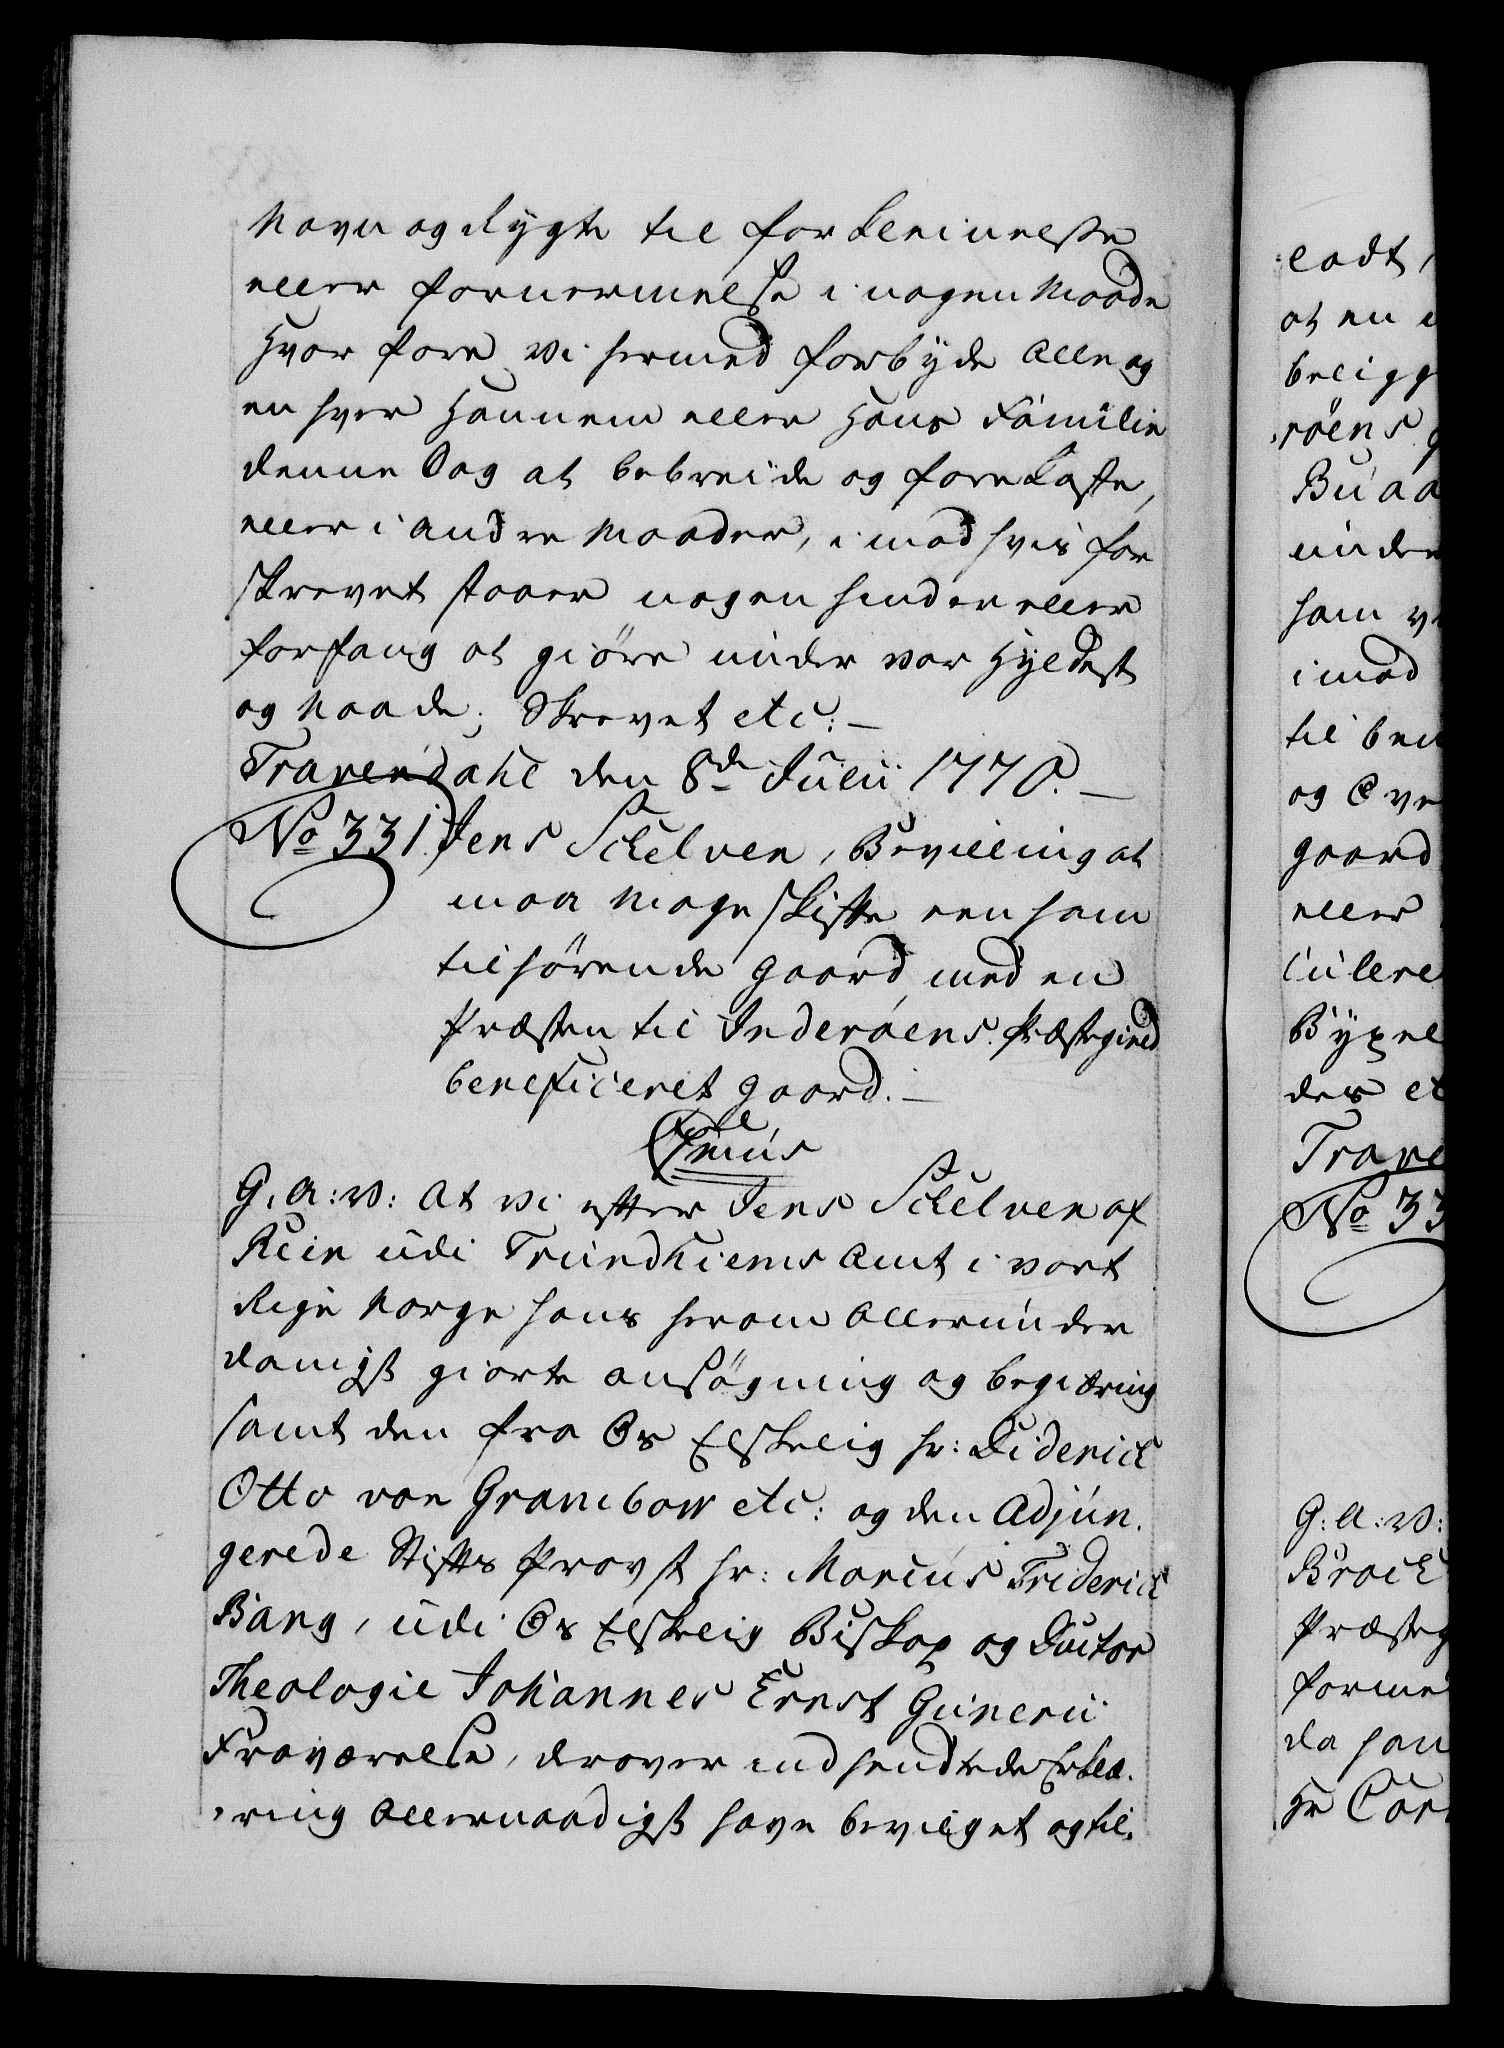 Navn og Rygte til forkleinelse
eller fornermelse i nogen Maade
Hvor fore vi hermed forbyde Alle og
en hver Hannem eller Hans Familie
denne Sag at bebreide og forekaste,
eller i andre Maader, imod hvis for
skrevet staaer nogen hinder eller
forfang at giøre under vor Hyldest
og Naade; Skrevet etc: —
Travendahl den 8de Julii 1770. —
No 331. Jens Schelven, Bevilling at
maa Mageskifte een ham
tilhørende gaard med en
Præsten til Inderøens Præstegield
beneficeret gaard. —
G. A: V: At vi efter Jens Schelven af
Rein udi Trundhiems Amt i vort
Rige Norge hans herom Allerunder
danigst giorte ansøgning og begiæring
samt den fra Os Elskelig Hr: Diderich
Otto von Grambow etc: og den Adjun.
gerede Stifts Provst Hr: Marcus Friderich
Bang, udi Os Elskelig Biskop og Doctor
Theologie Johannes Ernst Guneri
Fraværelse, derover indsendte Erklæ.
ring Allernaadigst have bevilget og til.
ladt,
at en
beligg
røens
Buaa
under
som
imod
til
og
gaard
eller
Byxel
des
Trave
No 33
G: A: V:
Brock
Præsteg
forme
da han
Hr